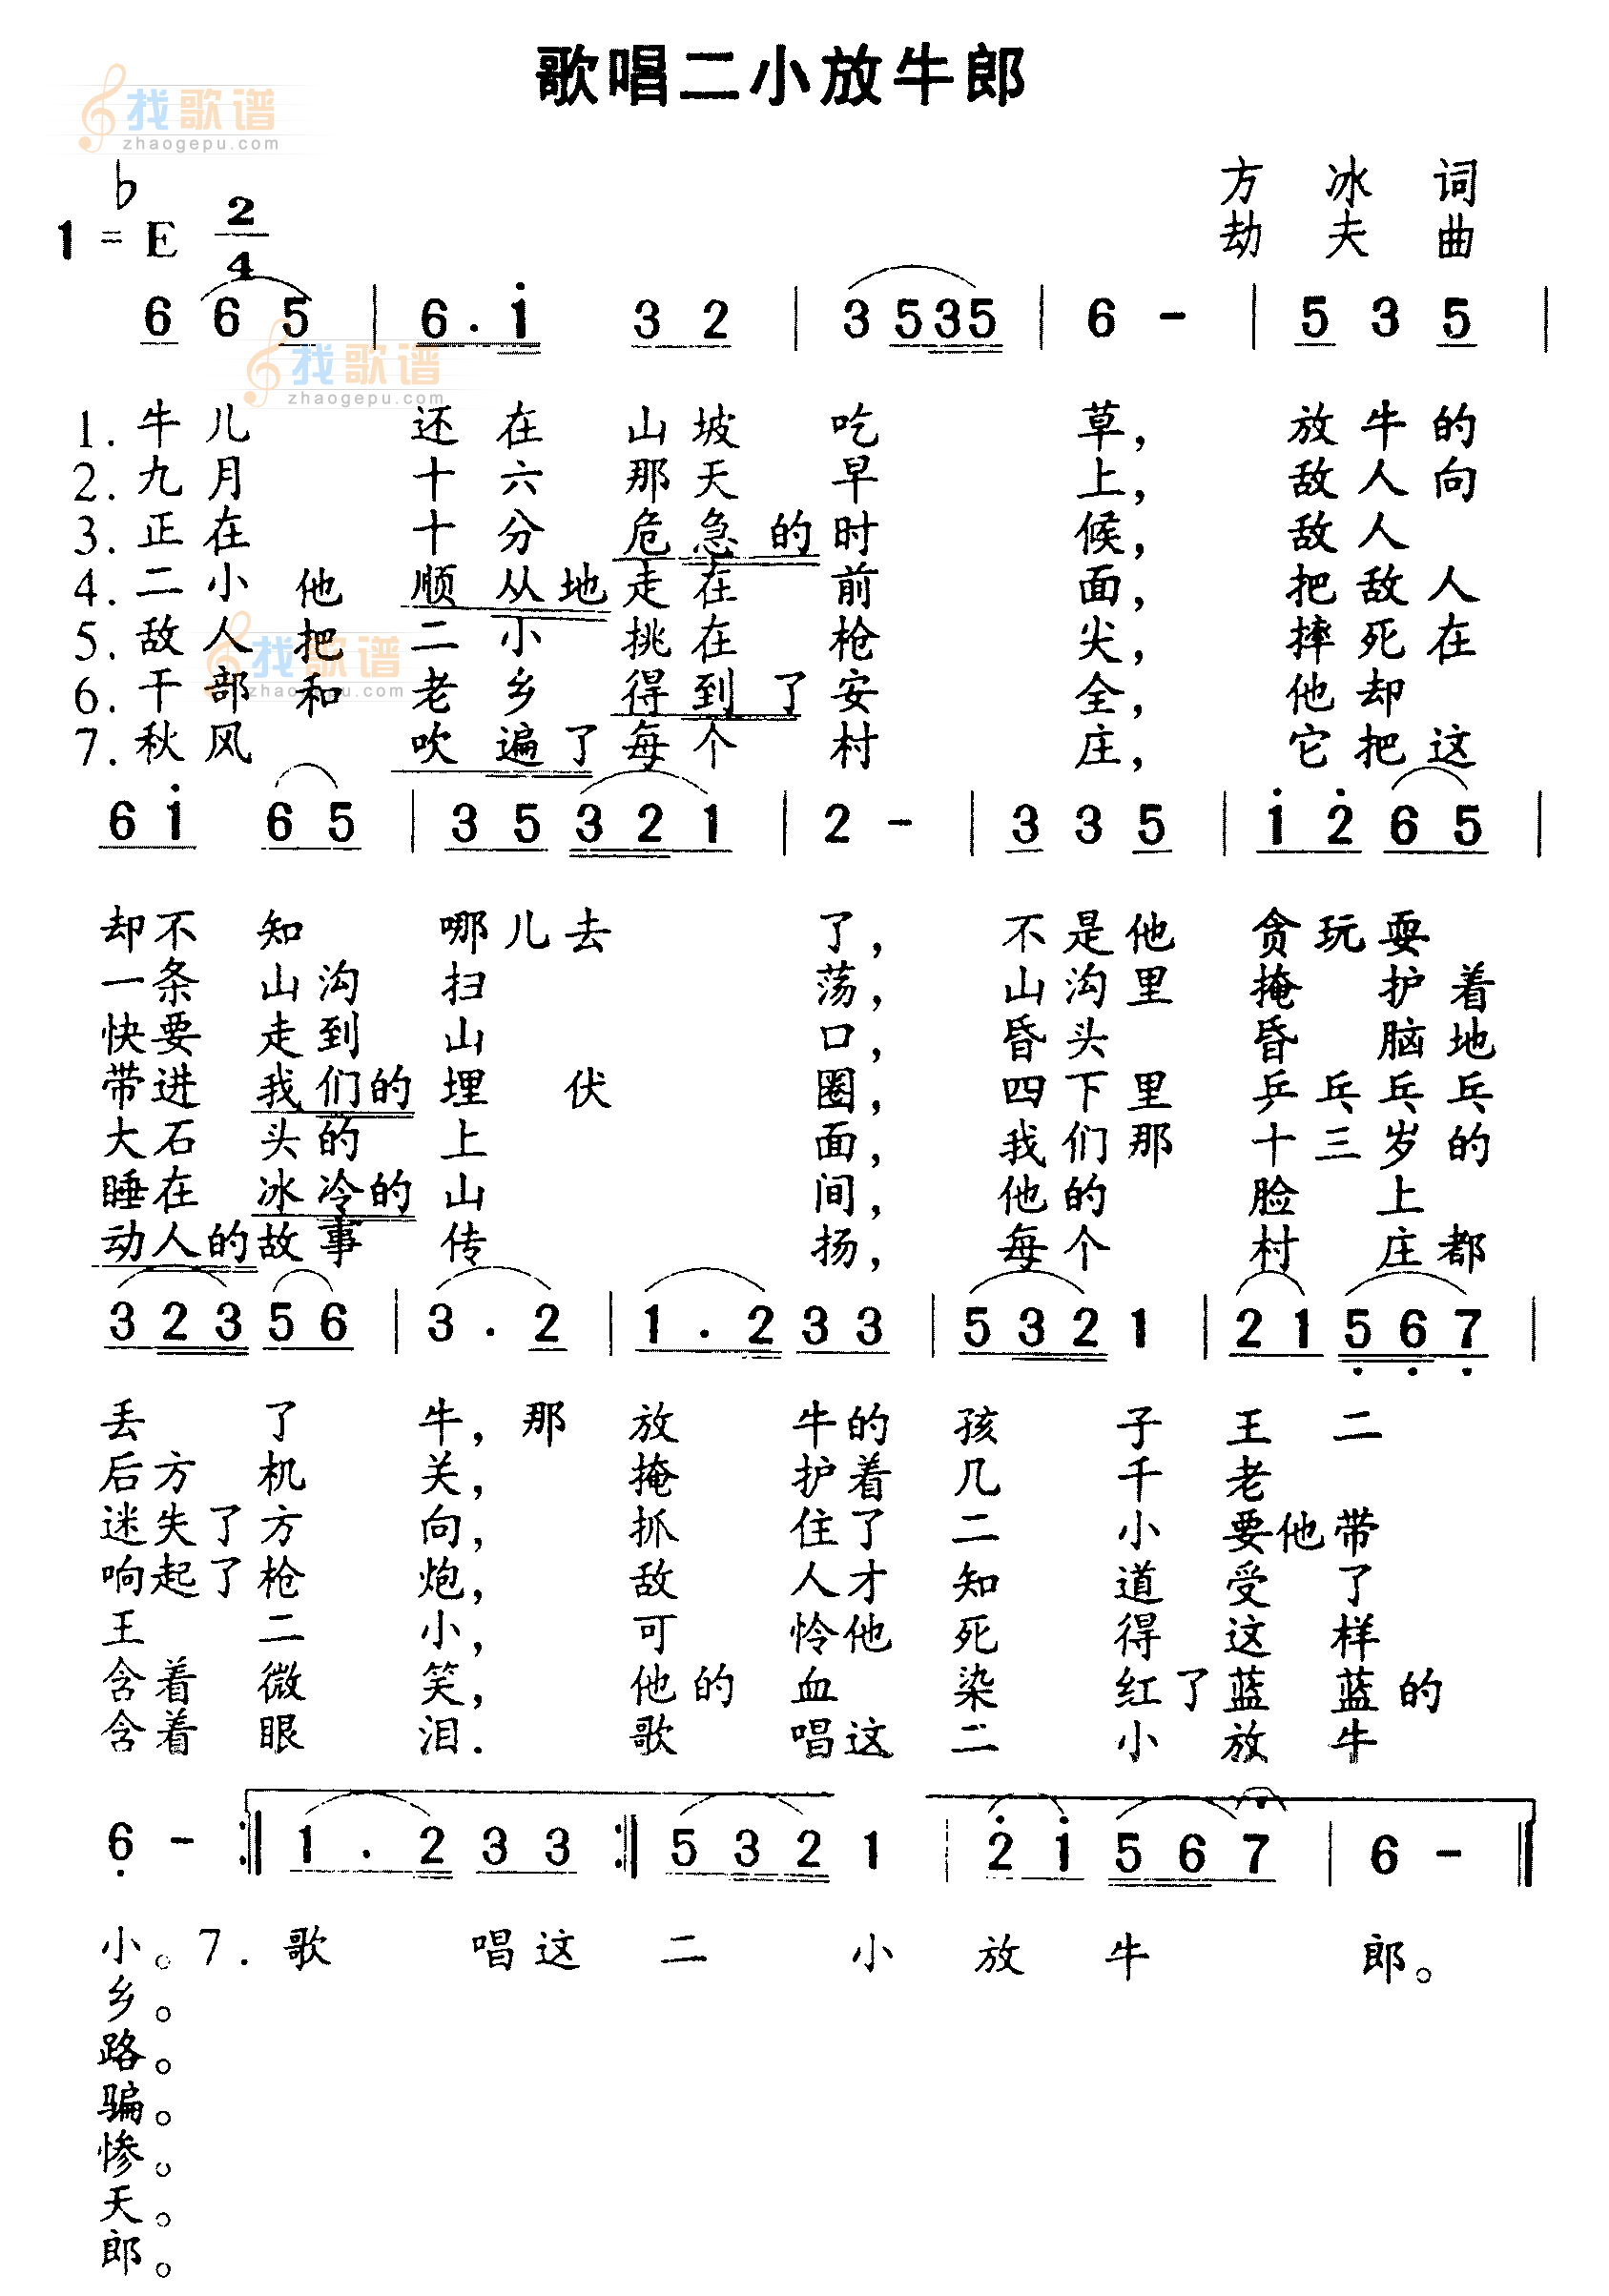 歌唱二小放牛郎
找歌谱
zhaogepu.com
方 冰 词
♭
1 = E 2/4
劫 夫 曲
6 6 5 | 6 . 1 3 2 | 3 5 3 5 | 6 - | 5 3 5 |
找歌谱
zhaogepu.com
1. 牛儿 还在山坡吃 草, 放牛的
2. 九月 十六那天早 上, 敌人向
3. 正在 十分危急的时 候, 敌人
4. 二小他顺从地走在前 面, 把敌人
5. 敌人把二小挑在枪 尖, 摔死在
找歌谱
zhaogepu.com
6. 干部和老乡得到了安 全, 他却
7. 秋风 吹遍了每个村 庄, 它把这
6 1 6 5 | 3 5 3 2 1 | 2 - | 3 3 5 | 1 2 6 5 |
却不知 哪儿去 了, 不是他 贪玩耍
一条山沟扫 荡, 山沟里 掩护着
快要走到山 口, 昏头 昏脑地
带进我们的埋伏 圈, 四下里 乒乓乒乓
大石头的上 面, 我们那 十三岁的
睡在冰冷的山 间, 他的 脸上
动人的故事传 扬, 每个 村庄都
3 2 3 5 6 | 3 . 2 | 1 . 2 3 3 | 5 3 2 1 | 2 1 5 6 7 |
丢了 牛, 那放 牛的孩 子王二
后方机 关, 掩 护着几 千老
迷失了方 向, 抓 住了二 小要他带
响起了枪 炮, 敌 人才知 道受了
王二 小, 可 怜他死 得这样
含着微 笑, 他的血 染 红了蓝蓝的
含着眼 泪. 歌 唱这二 小放牛
6 - :‖ 1 . 2 3 3 :‖ 5 3 2 1 | 2 1 5 6 7 | 6 - ‖
小。 7. 歌 唱这 二 小 放 牛 郎。
乡。
路。
骗。
惨。
天。
郎。